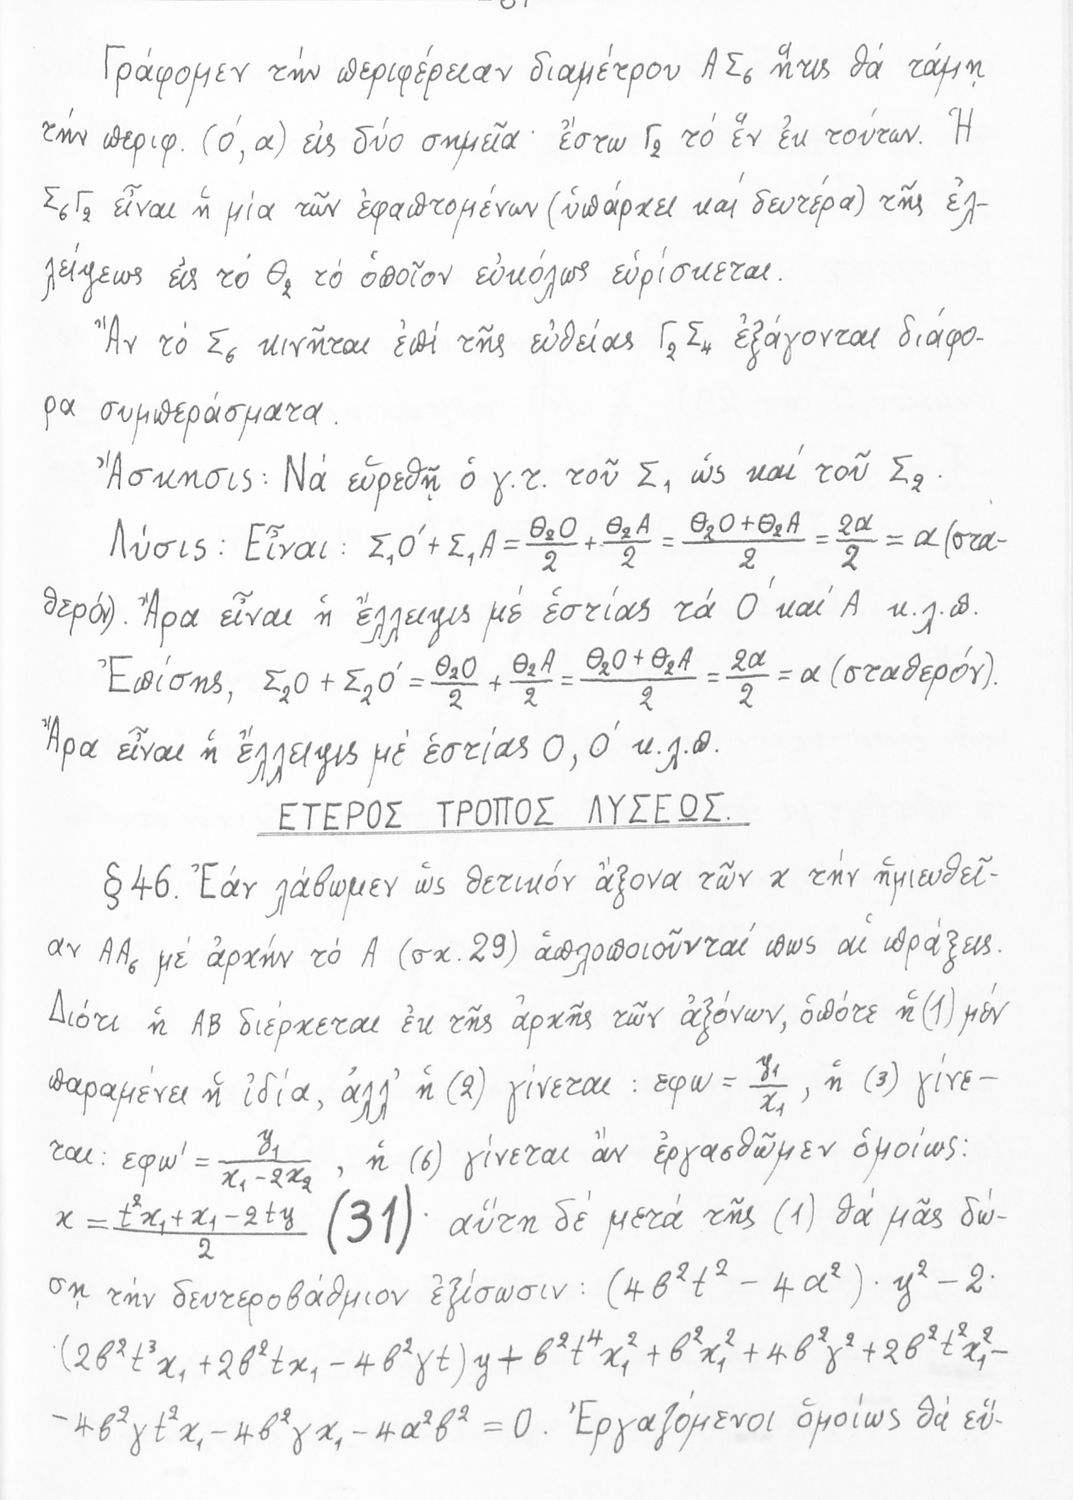 Γράφομεν τήν περιφέρειαν διαμέτρου ΑΣ₆ ἥτις θά τάμῃ
τήν περιφ. (Ο΄, α) εἰς δύο σημεῖα· ἔστω Γ₂ τό ἕν ἐκ τούτων. Ἡ
Σ₆Γ₂ εἶναι ἡ μία τῶν ἐφαπτομένων (ὑπάρχει καί δευτέρα) τῆς ἐλ-
λείψεως εἰς τό Θ₂ τό ὁποῖον εὐκόλως εὑρίσκεται.
Ἄν τό Σ₆ κινῆται ἐπί τῆς εὐθείας Γ₂Σ₄ ἐξάγονται διάφο-
ρα συμπεράσματα.
Ἄσκησις: Νά εὑρεθῇ ὁ γ.τ. τοῦ Σ₁ ὡς καί τοῦ Σ₂.
Λύσις: Εἶναι: Σ₁Ο΄ + Σ₁Α = Θ₂Ο/2 + Θ₂Α/2 = (Θ₂Ο + Θ₂Α)/2 = 2α/2 = α (στα-
θερόν). Ἄρα εἶναι ἡ ἔλλειψις μέ ἑστίας τά Ο΄ καί Α κ.λ.π.
Ἐπίσης, Σ₂Ο + Σ₂Ο΄ = Θ₂Ο/2 + Θ₂Α/2 = (Θ₂Ο + Θ₂Α)/2 = 2α/2 = α (σταθερόν).
Ἄρα εἶναι ἡ ἔλλειψις μέ ἑστίας Ο, Ο΄ κ.λ.π.
ΕΤΕΡΟΣ ΤΡΟΠΟΣ ΛΥΣΕΩΣ.
§ 46. Ἐάν λάβωμεν ὡς θετικόν ἄξονα τῶν x τήν ἡμιευθεῖ-
αν ΑΑ₆ μέ ἀρχήν τό Α (σχ. 29) ἁπλοποιοῦνταί πως αἱ πράξεις.
Διότι ἡ ΑΒ διέρχεται ἐκ τῆς ἀρχῆς τῶν ἀξόνων, ὁπότε ἡ (1) μέν
παραμένει ἡ ἰδία, ἀλλ' ἡ (2) γίνεται: εφω = y₁/x₁, ἡ (3) γίνε-
ται: εφω΄ = y₁/(x₁ - 2x₂), ἡ (6) γίνεται ἄν ἐργασθῶμεν ὁμοίως:
x = (t²x₁ + x₁ - 2ty)/2 (31)· αὕτη δέ μετά τῆς (1) θά μᾶς δώ-
σῃ τήν δευτεροβάθμιον ἐξίσωσιν: (4β²t² - 4α²)·y² - 2·
·(2β²t³x₁ + 2β²tx₁ - 4β²γt)y + β²t⁴x₁² + β²x₁² + 4β²γ² + 2β²t²x₁² -
- 4β²γt²x₁ - 4β²γx₁ - 4α²β² = 0. Ἐργαζόμενοι ὁμοίως θά εὕ-